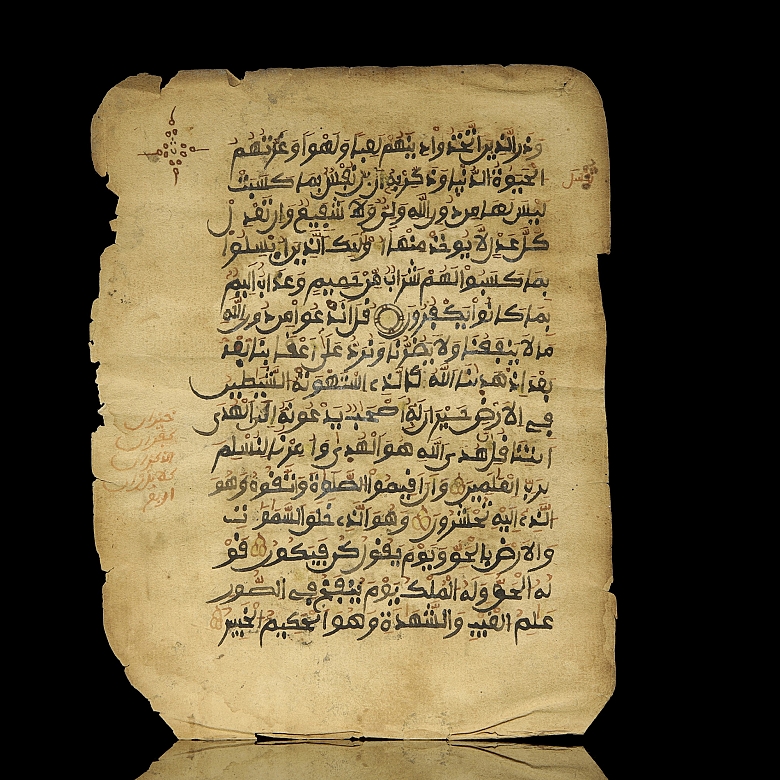 وذر الذين اتخذوا دينهم لعبا ولهوا وغرتهم
الحيوة الدنيا وذكر به ان نفس بما كسبت
تبسل
ليس لها من دون الله ولي ولا شفيع وان تعدل
كل عدل لا يوخذ منها اوليك الذين ابسلوا
بما كسبوا لهم شراب من حميم وعذاب اليم
بما كانوا يكفرون قل اندعوا من دون الله
ما لا ينفعنا ولا يضرنا ونرد على اعقابنا بعد
بعد اذ هدينا الله كالذي استهوته الشيطين
في الارض حيران له اصحب يدعونه الى الهدى
ايتنا قل ان هدى الله هو الهدى وامرنا لنسلم
لرب العلمين وان اقيموا الصلوة واتقوه وهو
الذي اليه تحشرون وهو الذي خلق السموت
والارض بالحق ويوم يقول كن فيكون قو
له الحق وله الملك يوم ينفخ في الصور
علم الغيب والشهدة وهو الحكيم الخبير